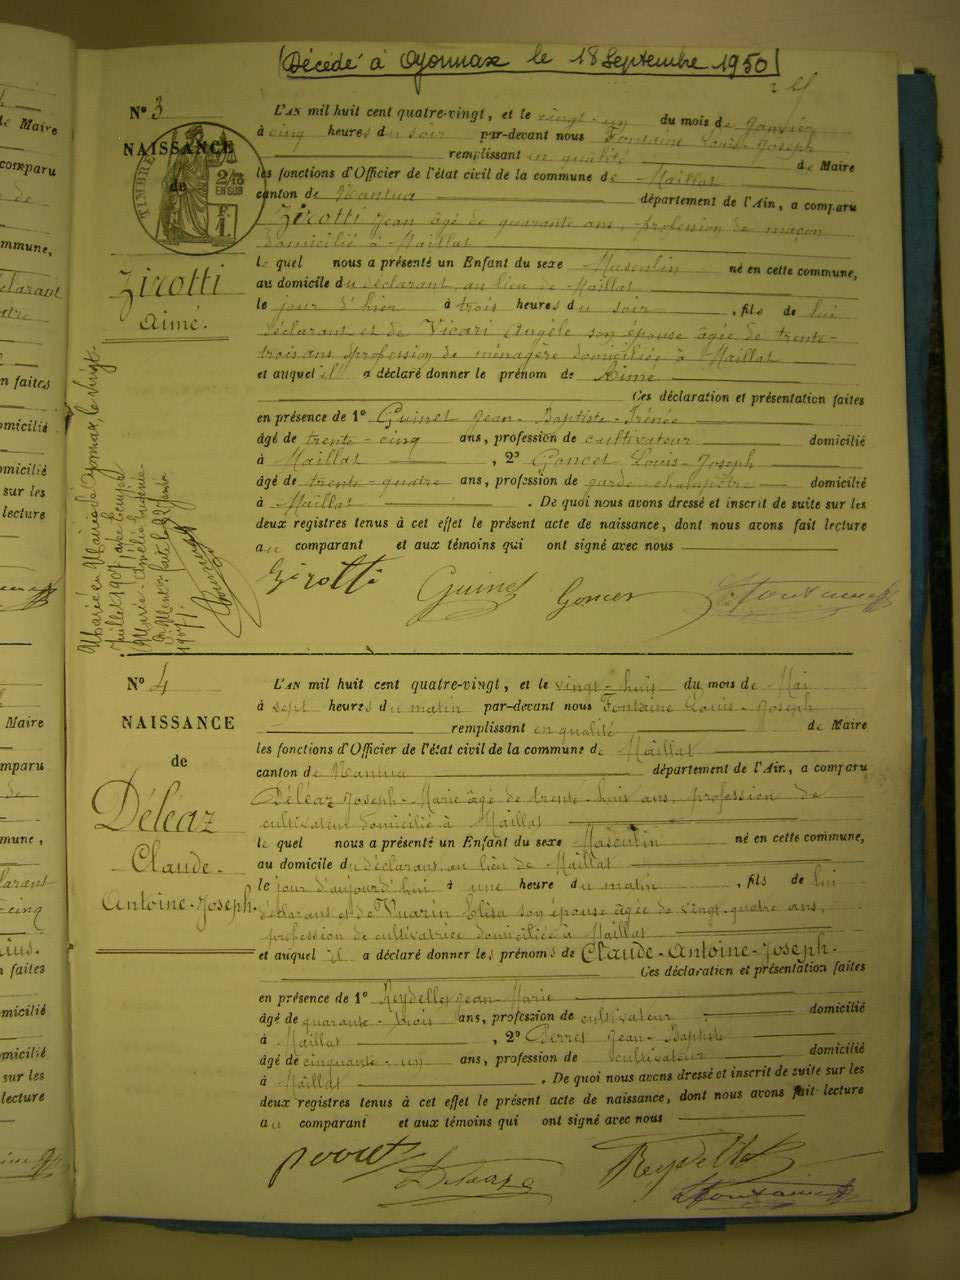 Décédé à Oyonnax le 18 Septembre 1950
N° 3
NAISSANCE
de
TIMBRE
2/10
EN SUS
Zirotti
Aimé.
L'AN mil huit cent quatre-vingt, et le vingt-un du mois de Janvier
à cinq heures du soir par-devant nous Fontaine Louis-Joseph
remplissant en qualité de Maire
les fonctions d'Officier de l'état civil de la commune de Maillat
canton de Nantua département de l'Ain, a comparu
Zirotti Jean âgé de quarante ans, profession de maçon
domicilié à Maillat
le quel nous a présenté un Enfant du sexe Masculin né en cette commune,
au domicile du déclarant, au lieu de Maillat
le jour d'hier à trois heures du soir, fils de lui
déclarant et de Vicari Angèle son épouse âgée de trente-
trois ans profession de ménagère domiciliée à Maillat
et auquel il a déclaré donner le prénom de Aimé
Ces déclaration et présentation faites
en présence de 1° Guinet Jean-Baptiste-Irénée
âgé de trente-cinq ans, profession de cultivateur domicilié
à Maillat, 2° Goncet Louis-Joseph
âgé de trente-quatre ans, profession de garde champêtre domicilié
à Maillat. De quoi nous avons dressé et inscrit de suite sur les
deux registres tenus à cet effet le présent acte de naissance, dont nous avons fait lecture
au comparant et aux témoins qui ont signé avec nous
Zirotti Guinet Goncet Fontaine
Marié en Mairie de Oyonnax, le vingt
Juillet 1907, avec
Marie-Amélie-Eugénie
1907.
N° 4
NAISSANCE
de
Déléaz
Claude-
Antoine-Joseph.
L'AN mil huit cent quatre-vingt, et le vingt-huit du mois de Mai
à sept heures du matin par-devant nous Fontaine Louis-Joseph
remplissant en qualité de Maire
les fonctions d'Officier de l'état civil de la commune de Maillat
canton de Nantua département de l'Ain, a comparu
Déléaz Joseph-Marie âgé de trente-huit ans, profession de
cultivateur domicilié à Maillat
le quel nous a présenté un Enfant du sexe Masculin né en cette commune,
au domicile du déclarant, au lieu de Maillat
le jour d'aujourd'hui à une heure du matin, fils de lui
déclarant et de Vuarin Elisa son épouse âgée de vingt-quatre ans,
profession de cultivatrice domiciliée à Maillat
et auquel il a déclaré donner les prénoms de Claude-Antoine-Joseph.
Ces déclaration et présentation faites
en présence de 1° Reydellet Jean-Marie
âgé de quarante-trois ans, profession de cultivateur domicilié
à Maillat, 2° Perret Jean-Baptiste
âgé de cinquante-un ans, profession de cultivateur domicilié
à Maillat. De quoi nous avons dressé et inscrit de suite sur les
deux registres tenus à cet effet le présent acte de naissance, dont nous avons fait lecture
au comparant et aux témoins qui ont signé avec nous
Reydellet
Fontaine